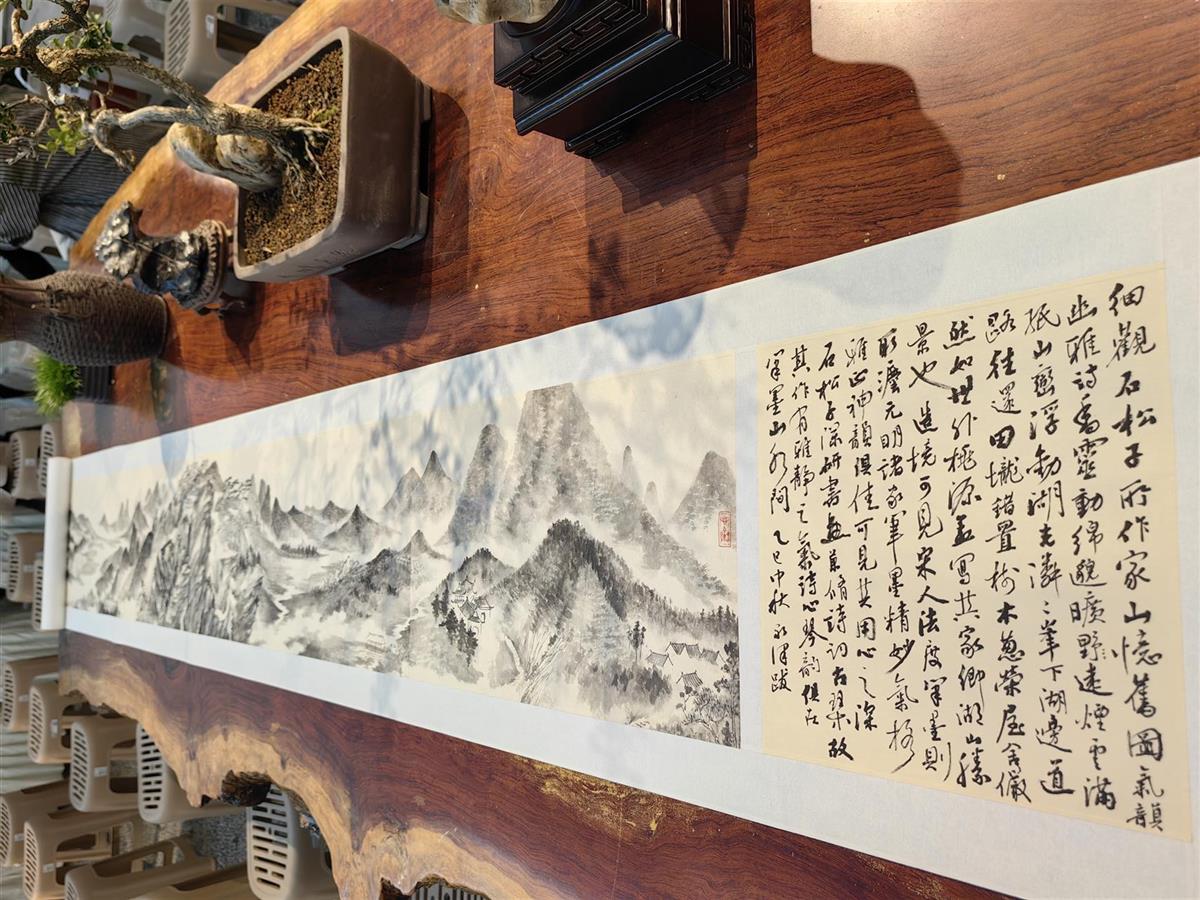 細觀石松子所作家山憶舊圖氣韻
幽雅詩意靈動綿邈曠野遠煙雲滿
紙山巒浮動湖光潾々峯下湖邊道
路往還田壠錯置樹木蔥榮屋舍儼
然如世外桃源盖寫其家鄉湖山勝
景也造境可見宋人法度筆墨則
取瀍元明諸家筆墨精妙氣格
雅正神韻俱佳可見其用心之深
石松子深研書畫兼脩詩詞古琹故
其作有雅靜之氣詩心琴韻俱在
筆墨山水間 乙巳中秋 跋